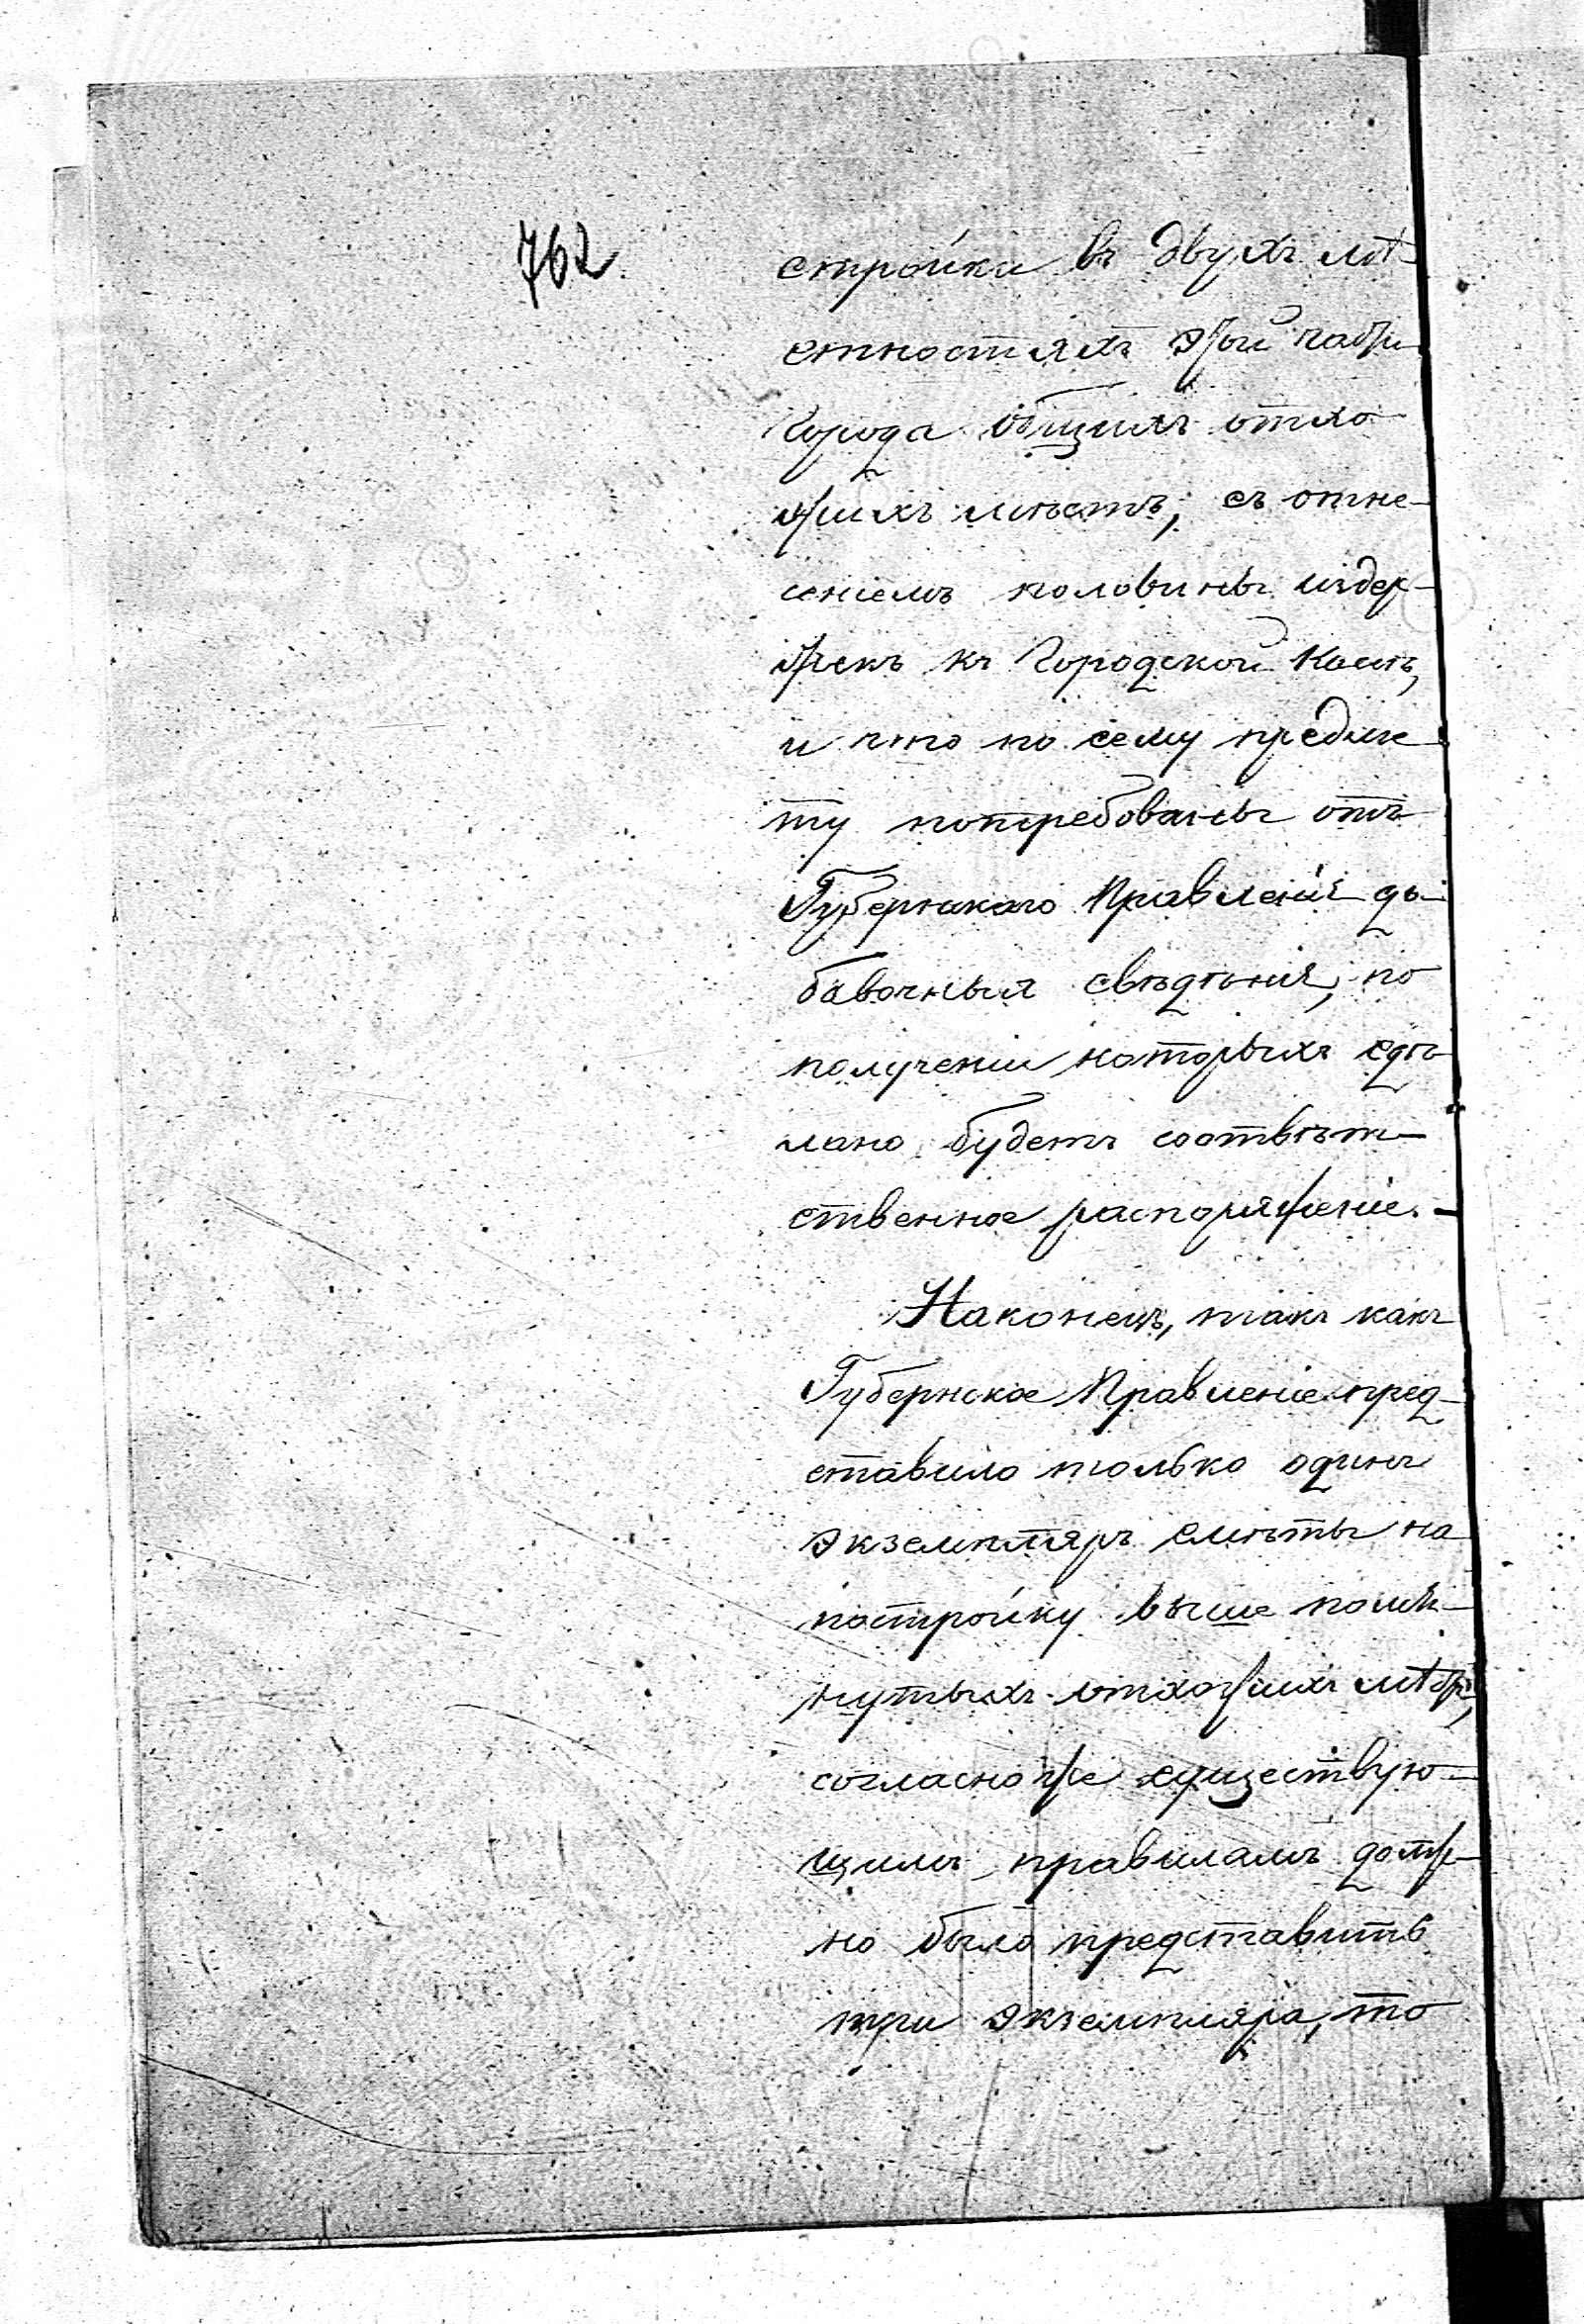 762
стройки въ двухъ мѣ-
стностяхъ этой части
Города общихъ отхо-
жихъ мѣстъ, съ отне-
сеніемъ половины издер-
жекъ къ Городской Кассѣ,
и что по сему предме-
ту потребованы отъ
Губернскаго Правленія до-
бавочныя свѣдѣнія, по
полученіи которыхъ сдѣ-
лано будетъ соотвѣт-
ственное распоряженіе. -
Наконецъ, такъ какъ
Губернское Правленіе пред-
ставило только одинъ
экземпляръ смѣты на
постройку выше помя-
нутыхъ отхожихъ мѣстъ,
согласно же существую-
щимъ правиламъ долж-
но было представить
три экземпляра, то